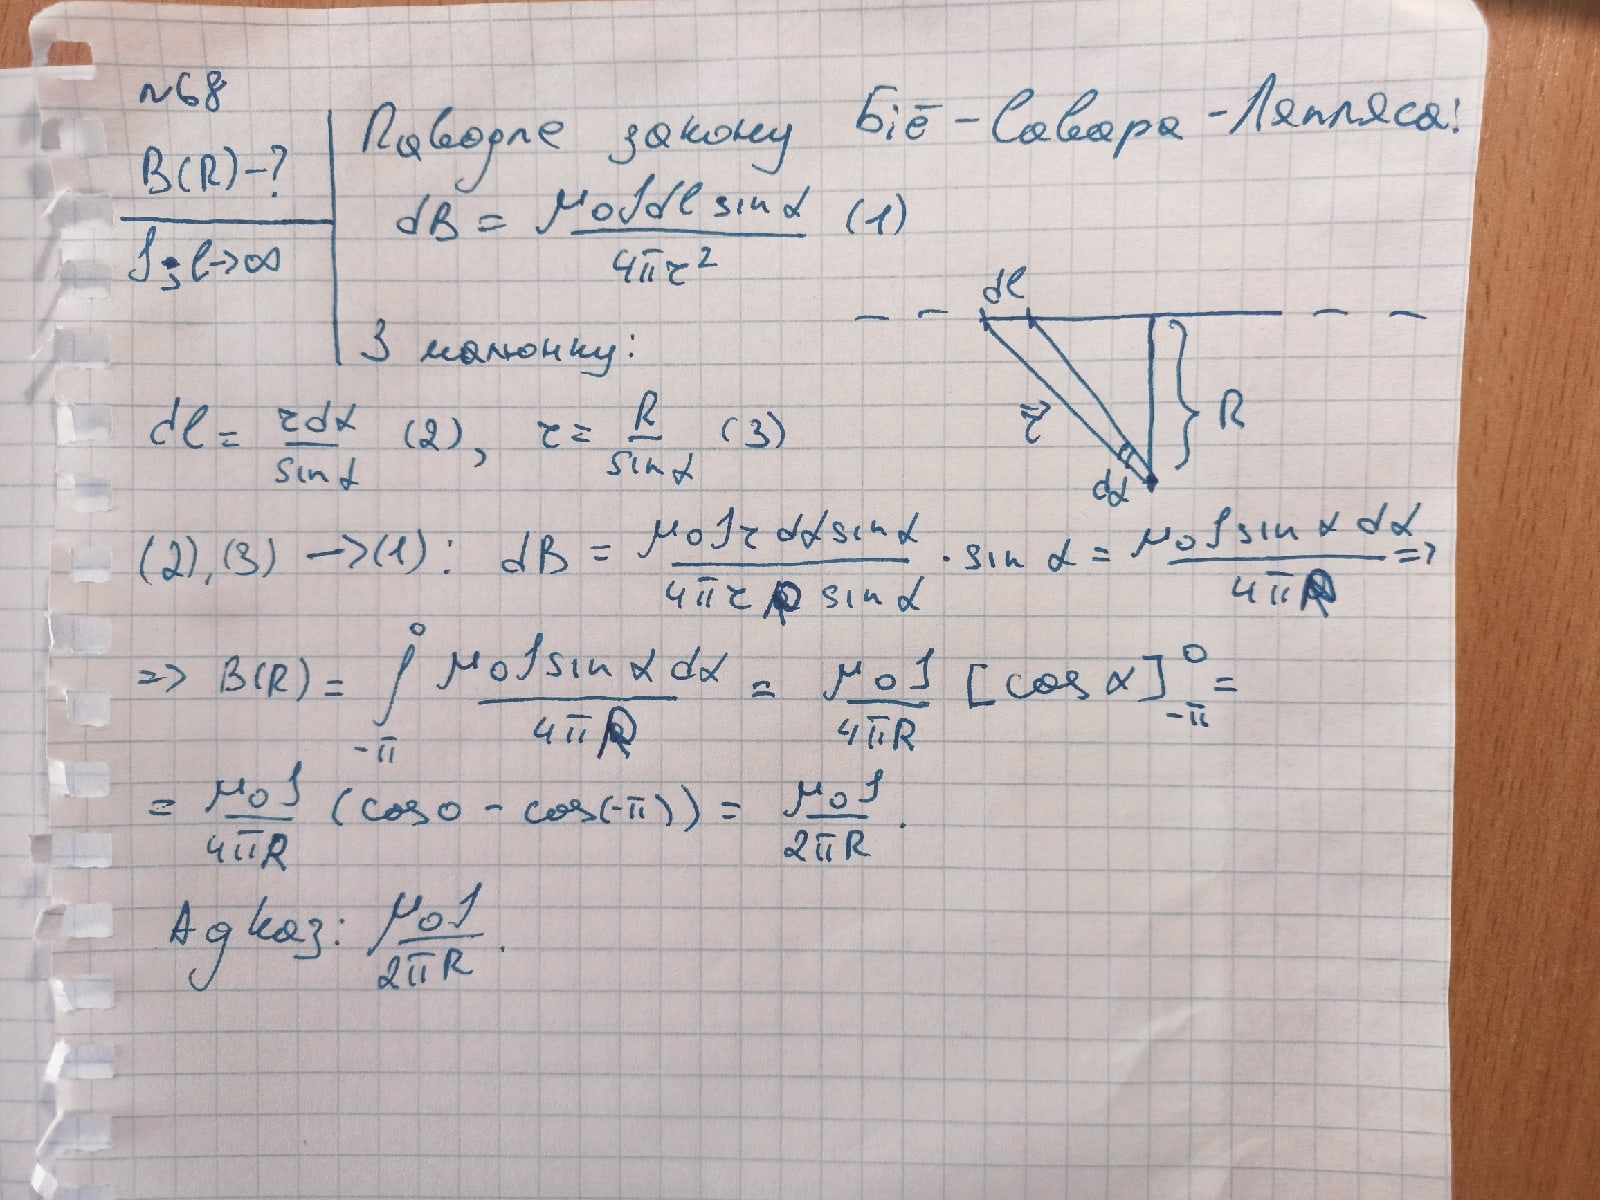 №68
B(R)-?
I; l→∞
Паводле закону Біё-Савара-Ляпляса:
dB = μ₀Idl sinα / 4πr² (1)
З малюнку:
dl
r⃗
R
dα
dl = rdα / sinα (2), r = R / sinα (3)
(2),(3) →(1): dB = μ₀Ir dα sinα / 4πr R sinα · sin α = μ₀I sin α dα / 4πR =>
=> B(R) = ∫₋π⁰ μ₀I sin α dα / 4πR = μ₀I / 4πR [cos α]₋π⁰ =
= μ₀I / 4πR (cos0 - cos(-π)) = μ₀I / 2πR.
Адказ: μ₀I / 2πR.